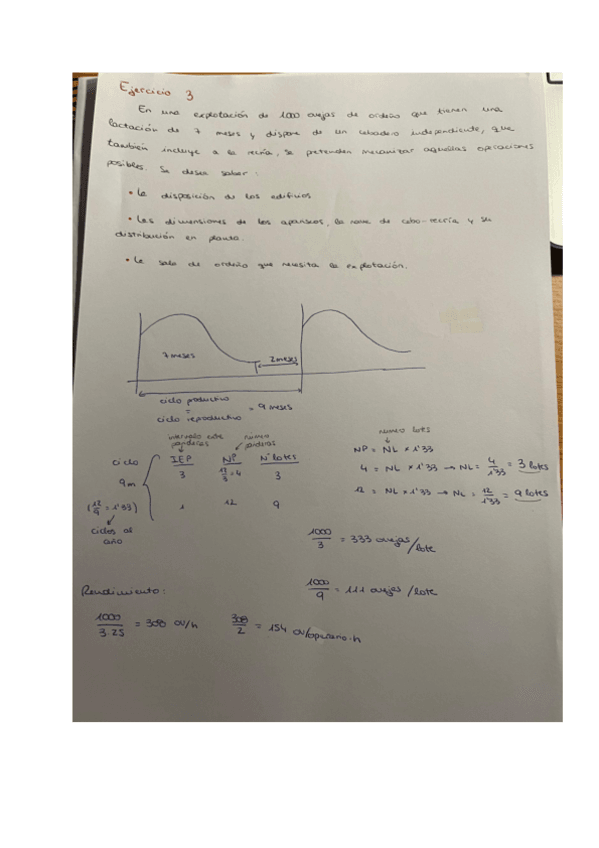 Ejercicio 3
En una explotación de 1000 ovejas de ordeño que tienen una
lactación de 7 meses y dispone de un cebadero independiente, que
también incluye a la recría, se pretenden mecanizar aquellas operaciones
posibles. Se desea saber:
• La disposición de los edificios
• Las dimensiones de los apriscos, la nave de cebo-recría y su
distribución en planta.
• La sala de ordeño que necesita la explotación.
7 meses
2 meses
ciclo productivo
=
ciclo reproductivo
= 9 meses
intervalo entre parideras
número parideras
número lotes
ciclo
9m
IEP NP Nº lotes
3 12/3 = 4 3
1 12 9
(12/9 = 1'33)
ciclos al año
NP = NL × 1'33
4 = NL × 1'33 → NL = 4/1'33 = 3 lotes
12 = NL × 1'33 → NL = 12/1'33 = 9 lotes
1000/3 = 333 ovejas/lote
1000/9 = 111 ovejas/lote
Rendimiento:
1000/3.25 = 308 ov/h
308/2 = 154 ov/operario·h